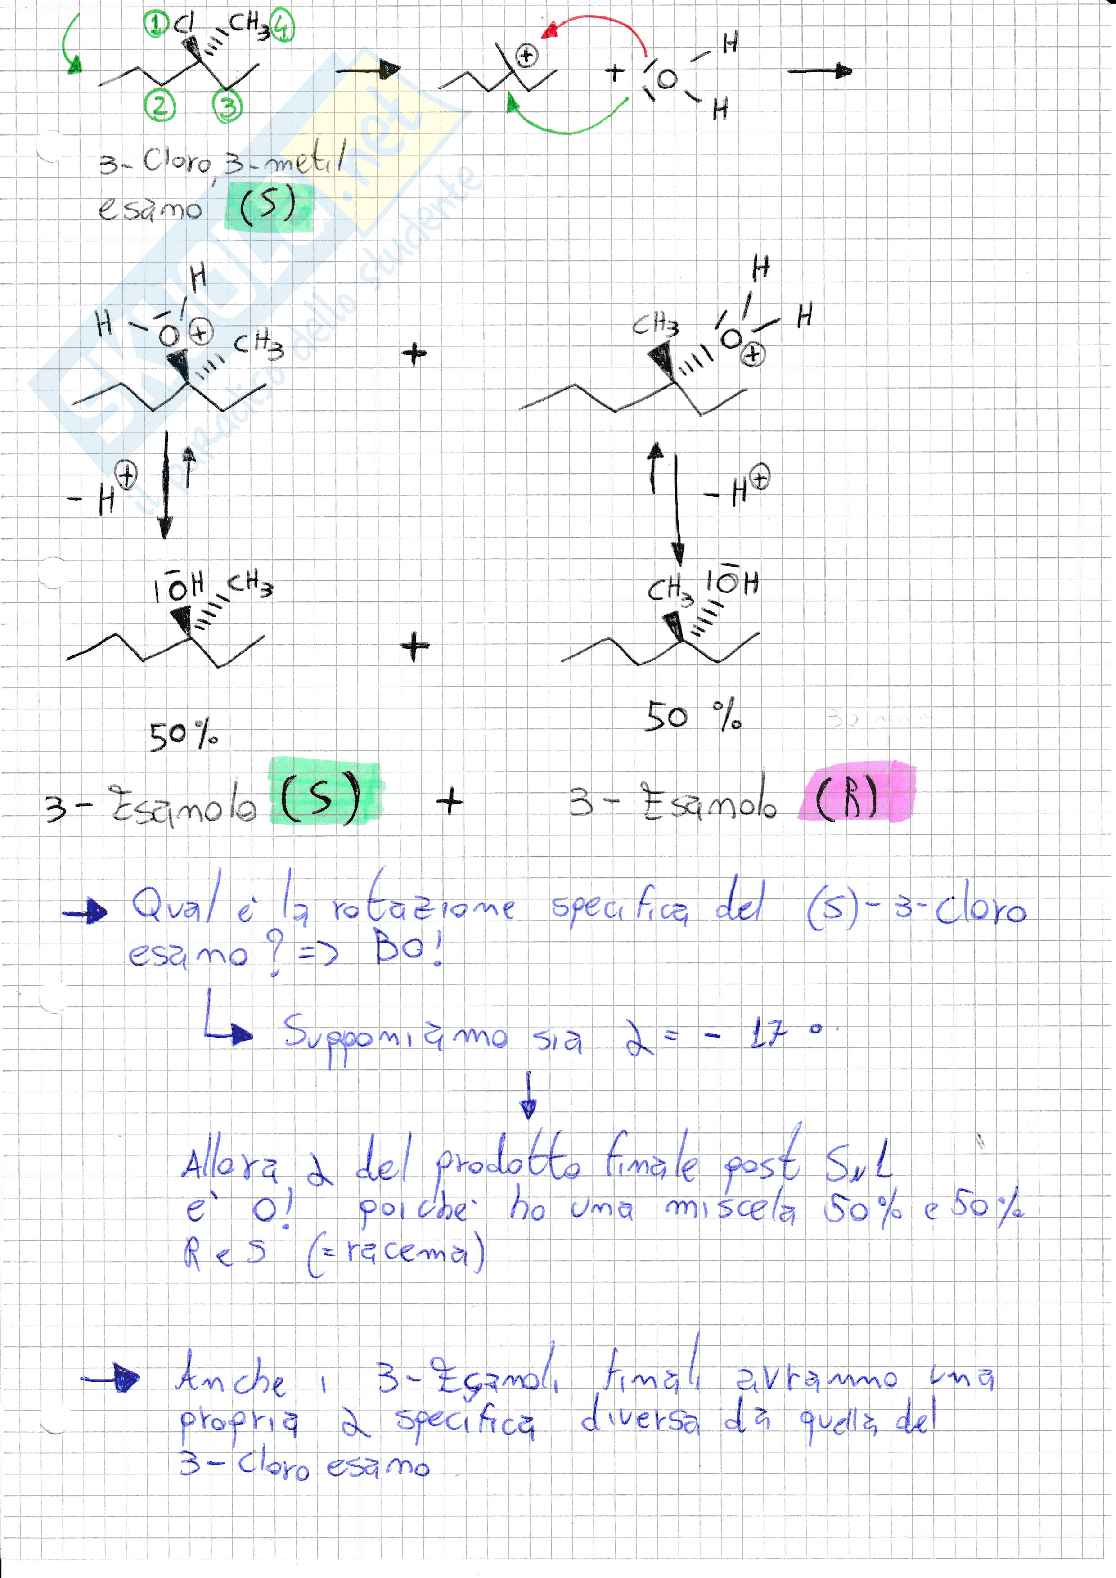 ① Cl CH3 ④
② ③
⊕ + O H H
3-Cloro, 3-metil
esano (S)
SKUOLA.net
il paradiso dello studente
H H O ⊕ CH3 + CH3 O H H ⊕
- H⊕ - H⊕
IŌH CH3 + CH3 IŌH
50% 50 %
3-Esanolo (S) + 3-Esanolo (R)
→ Qual è la rotazione specifica del (S)-3-cloro
esano? => BO!
↳ Supponiamo sia α = - 17°
↓
Allora α del prodotto finale post SN1
è 0! poiché ho una miscela 50% e 50%
R e S (=racema)
→ Anche i 3-Esanoli finali avranno una
propria α specifica diversa da quella del
3-cloro esano